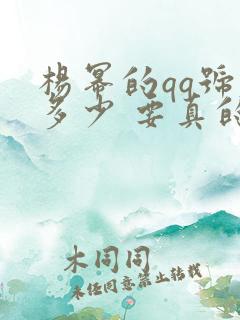 杨幂的qq號
多少 要真的
木同同
未经同意禁止转载